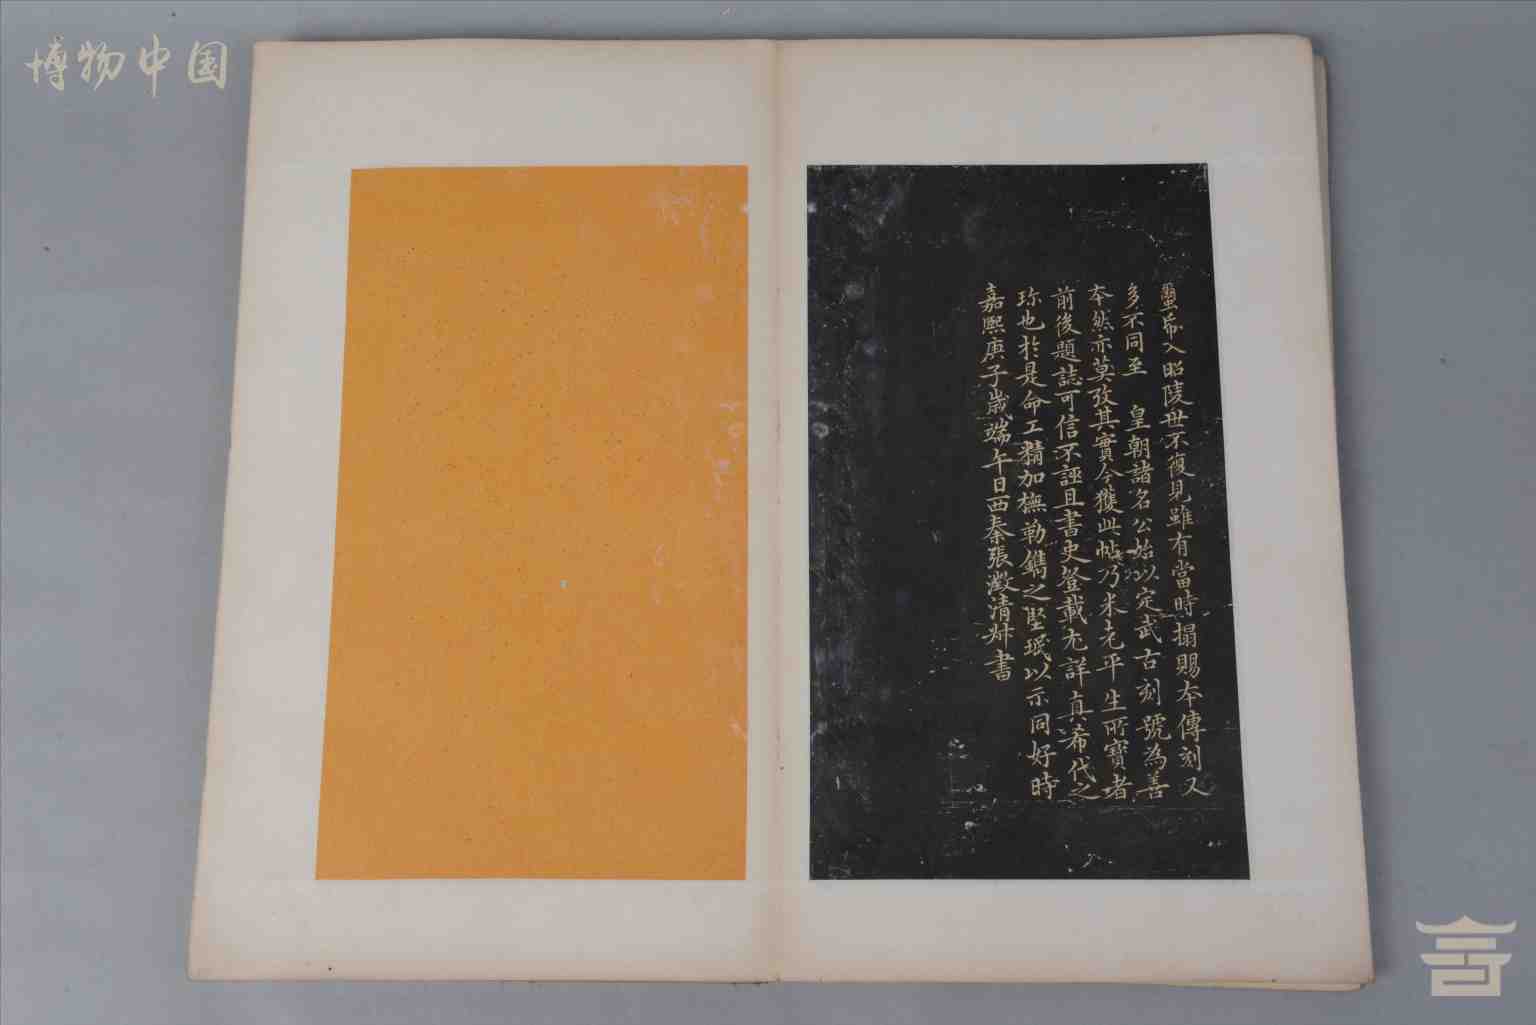 博物中国
蠒帋入昭陵世不復見雖有當時搨賜本傳刻又
多不同至 皇朝諸名公始以定武古刻號為善
本然亦莫攷其實今獲此帖乃米老平生所寶者
前後題誌可信不誣且書史登載尤詳真希代之
珎也於是命工精加橅勒鐫之堅珉以示同好時
嘉熙庚子歲端午日西秦張澂清尗書